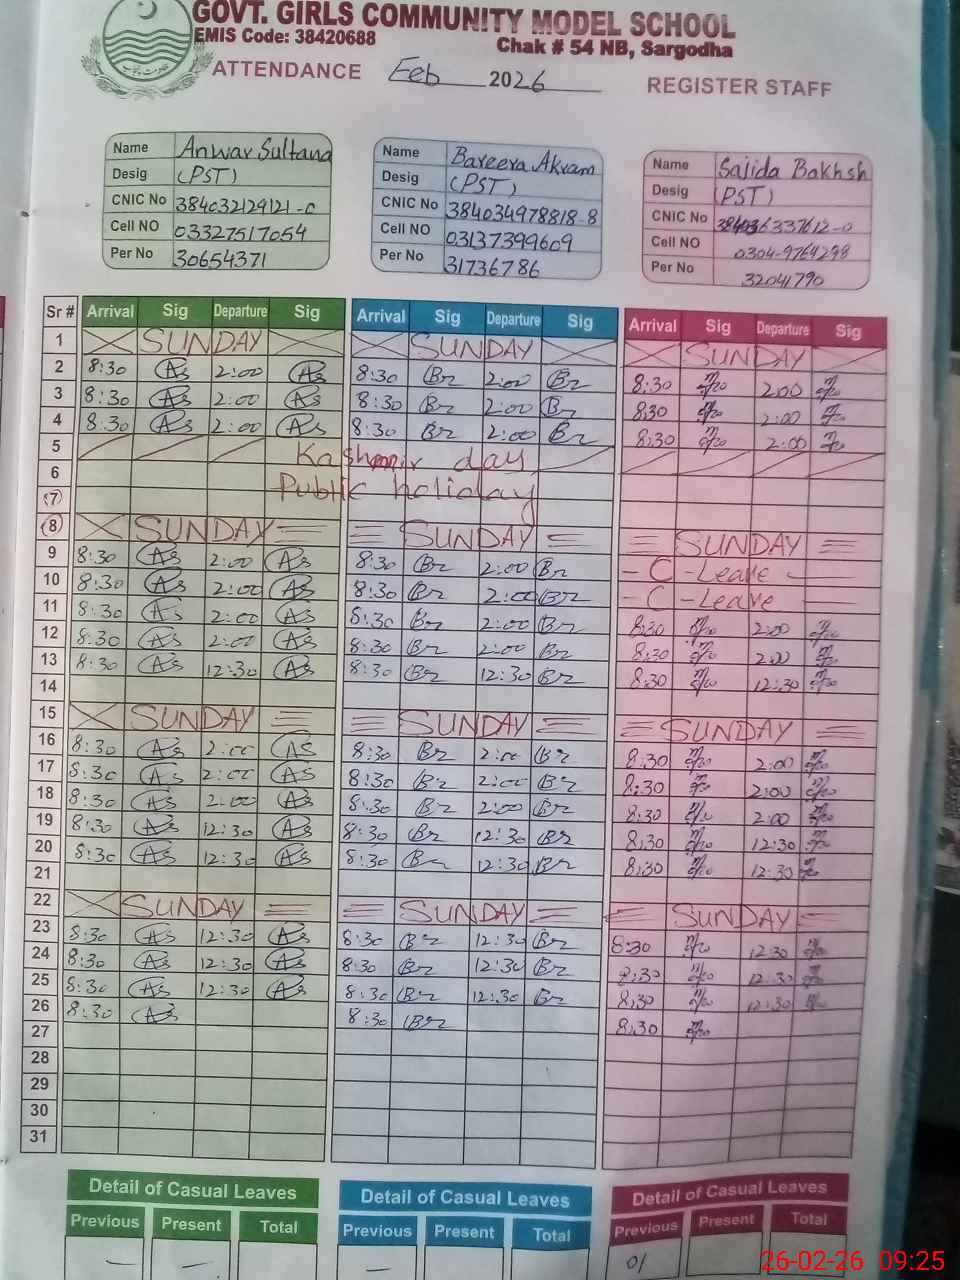 GOVT. GIRLS COMMUNITY MODEL SCHOOL
EMIS Code: 38420688
Chak # 54 NB, Sargodha
ATTENDANCE Feb 2026 REGISTER STAFF
Name Anwar Sultana
Desig (PST)
CNIC No 384032129121-0
Cell NO 03327517054
Per No 30654371
Name Bareera Akram
Desig (PST)
CNIC No 384034978818-8
Cell NO 03137399609
Per No 31736786
Name Sajida Bakhsh
Desig (PST)
CNIC No 384036337612-0
Cell NO 0304-9764298
Per No 32041790
Sr # Arrival Sig Departure Sig Arrival Sig Departure Sig Arrival Sig Departure Sig
1 SUNDAY SUNDAY SUNDAY
2 8:30 As 2:00 As 8:30 Br 2:00 Br 8:30 2:00
3 8:30 As 2:00 As 8:30 Br 2:00 Br 8:30 2:00
4 8:30 As 2:00 As 8:30 Br 2:00 Br 8:30 2:00
5 Kashmir day
6 Public holiday
7
8 SUNDAY SUNDAY SUNDAY
9 8:30 As 2:00 As 8:30 Br 2:00 Br - C - Leave
10 8:30 As 2:00 As 8:30 Br 2:00 Br - C - Leave
11 8:30 As 2:00 As 8:30 Br 2:00 Br 8:30 2:00
12 8:30 As 2:00 As 8:30 Br 2:00 Br 8:30 2:00
13 8:30 As 12:30 As 8:30 Br 12:30 Br 8:30 12:30
14
15 SUNDAY SUNDAY SUNDAY
16 8:30 As 2:00 As 8:30 Br 2:00 Br 8:30 2:00
17 8:30 As 2:00 As 8:30 Br 2:00 Br 8:30 2:00
18 8:30 As 2:00 As 8:30 Br 2:00 Br 8:30 2:00
19 8:30 As 12:30 As 8:30 Br 12:30 Br 8:30 12:30
20 8:30 As 12:30 As 8:30 Br 12:30 Br 8:30 12:30
21
22 SUNDAY SUNDAY SUNDAY
23 8:30 As 12:30 As 8:30 Br 12:30 Br 8:30 12:30
24 8:30 As 12:30 As 8:30 Br 12:30 Br 8:30 12:30
25 8:30 As 12:30 As 8:30 Br 12:30 Br 8:30 12:30
26 8:30 As 8:30 Br 8:30
27
28
29
30
31
Detail of Casual Leaves Detail of Casual Leaves Detail of Casual Leaves
Previous Present Total Previous Present Total Previous Present Total
— — — 01
26-02-26 09:25